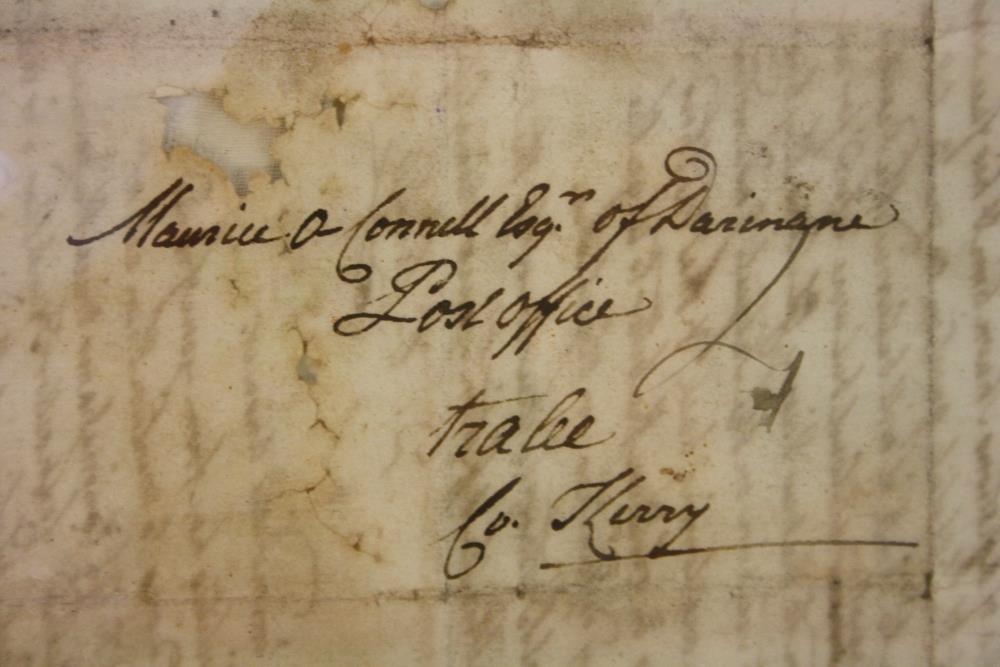 Maurice O Connell Esqr. of Darinane
Post office
tralee
Co. Kerry